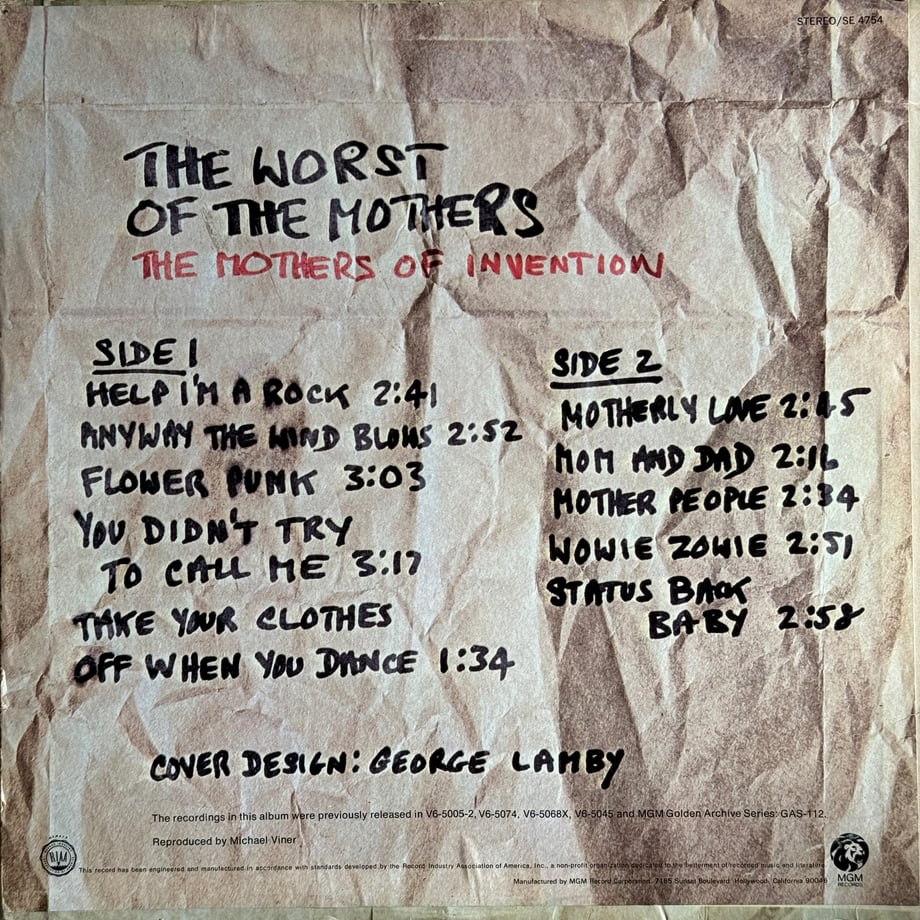 STEREO/SE 4754
THE WORST
OF THE MOTHERS
THE MOTHERS OF INVENTION
SIDE 1
HELP I'M A ROCK 2:41
ANYWAY THE WIND BLOWS 2:52
FLOWER PUNK 3:03
YOU DIDN'T TRY
TO CALL ME 3:17
TAKE YOUR CLOTHES
OFF WHEN YOU DANCE 1:34
SIDE 2
MOTHERLY LOVE 2:45
MOM AND DAD 2:16
MOTHER PEOPLE 2:34
WOWIE ZOWIE 2:51
STATUS BACK
BABY 2:58
COVER DESIGN: GEORGE LAMBY
The recordings in this album were previously released in V6-5005-2, V6-5074, V6-5068X, V6-5045 and MGM Golden Archive Series: GAS-112.
Reproduced by Michael Viner
RIAA
This record has been engineered and manufactured in accordance with standards developed by the Record Industry Association of America, Inc., a non-profit organization dedicated to the betterment of recorded music and literature.
Manufactured by MGM Record Corporation, 7165 Sunset Boulevard, Hollywood, California 90046
MGM
RECORDS